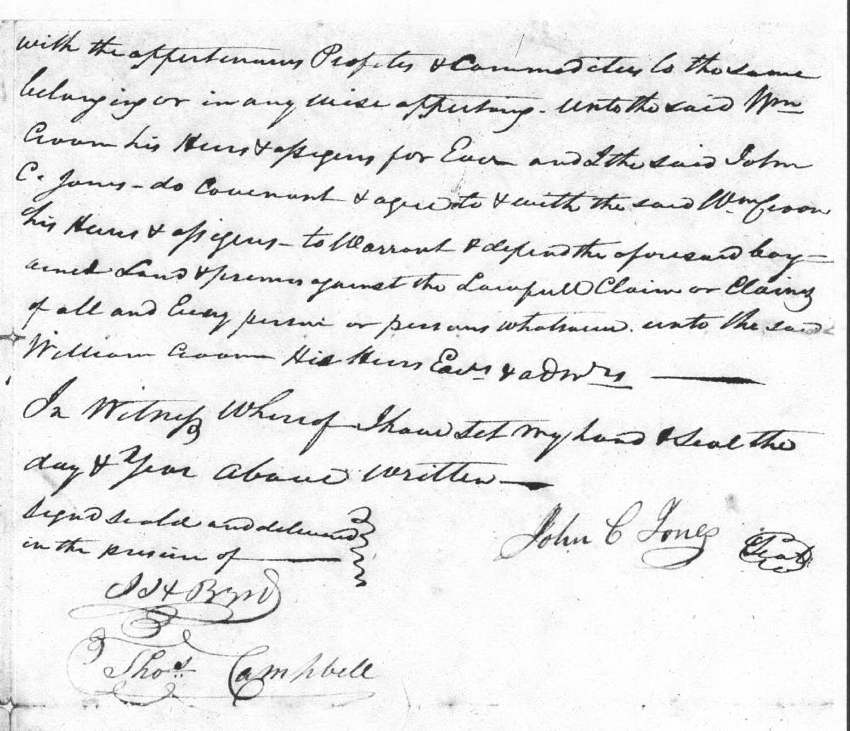 with the appertenances Profites & Commodities to the same
belonging or in any wise appertang. unto the said Wm
Croom his Heirs & assigns for Ever and I the said John
C. Jones - do Covenant & agree to & with the said Wm Croom
his Heirs & assigens - to Warrant & defend the aforesaid barg=
ained Land & premis against the Lawfull Claim or Claims
of all and Every person or persons whatsoever. unto the said
William Croom His Heirs Exrs & admrs
In Witness Whereof I have Set my hand & Seal the
day & Year above written
Signd seald and delivered
in the presence of
John C Jones Seal
Byrd
Thos Campbell